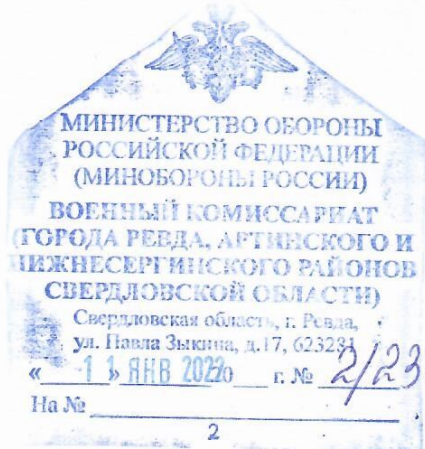 МИНИСТЕРСТВО ОБОРОНЫ
РОССИЙСКОЙ ФЕДЕРАЦИИ
(МИНОБОРОНЫ РОССИИ)
ВОЕННЫЙ КОМИССАРИАТ
(ГОРОДА РЕВДА, АРТИНСКОГО И
НИЖНЕСЕРГИНСКОГО РАЙОНОВ
СВЕРДЛОВСКОЙ ОБЛАСТИ)
Свердловская область, г. Ревда,
ул. Павла Зыкина, д.17, 623281
« 11 » ЯНВ 2022 г. № 2/23
На №
2